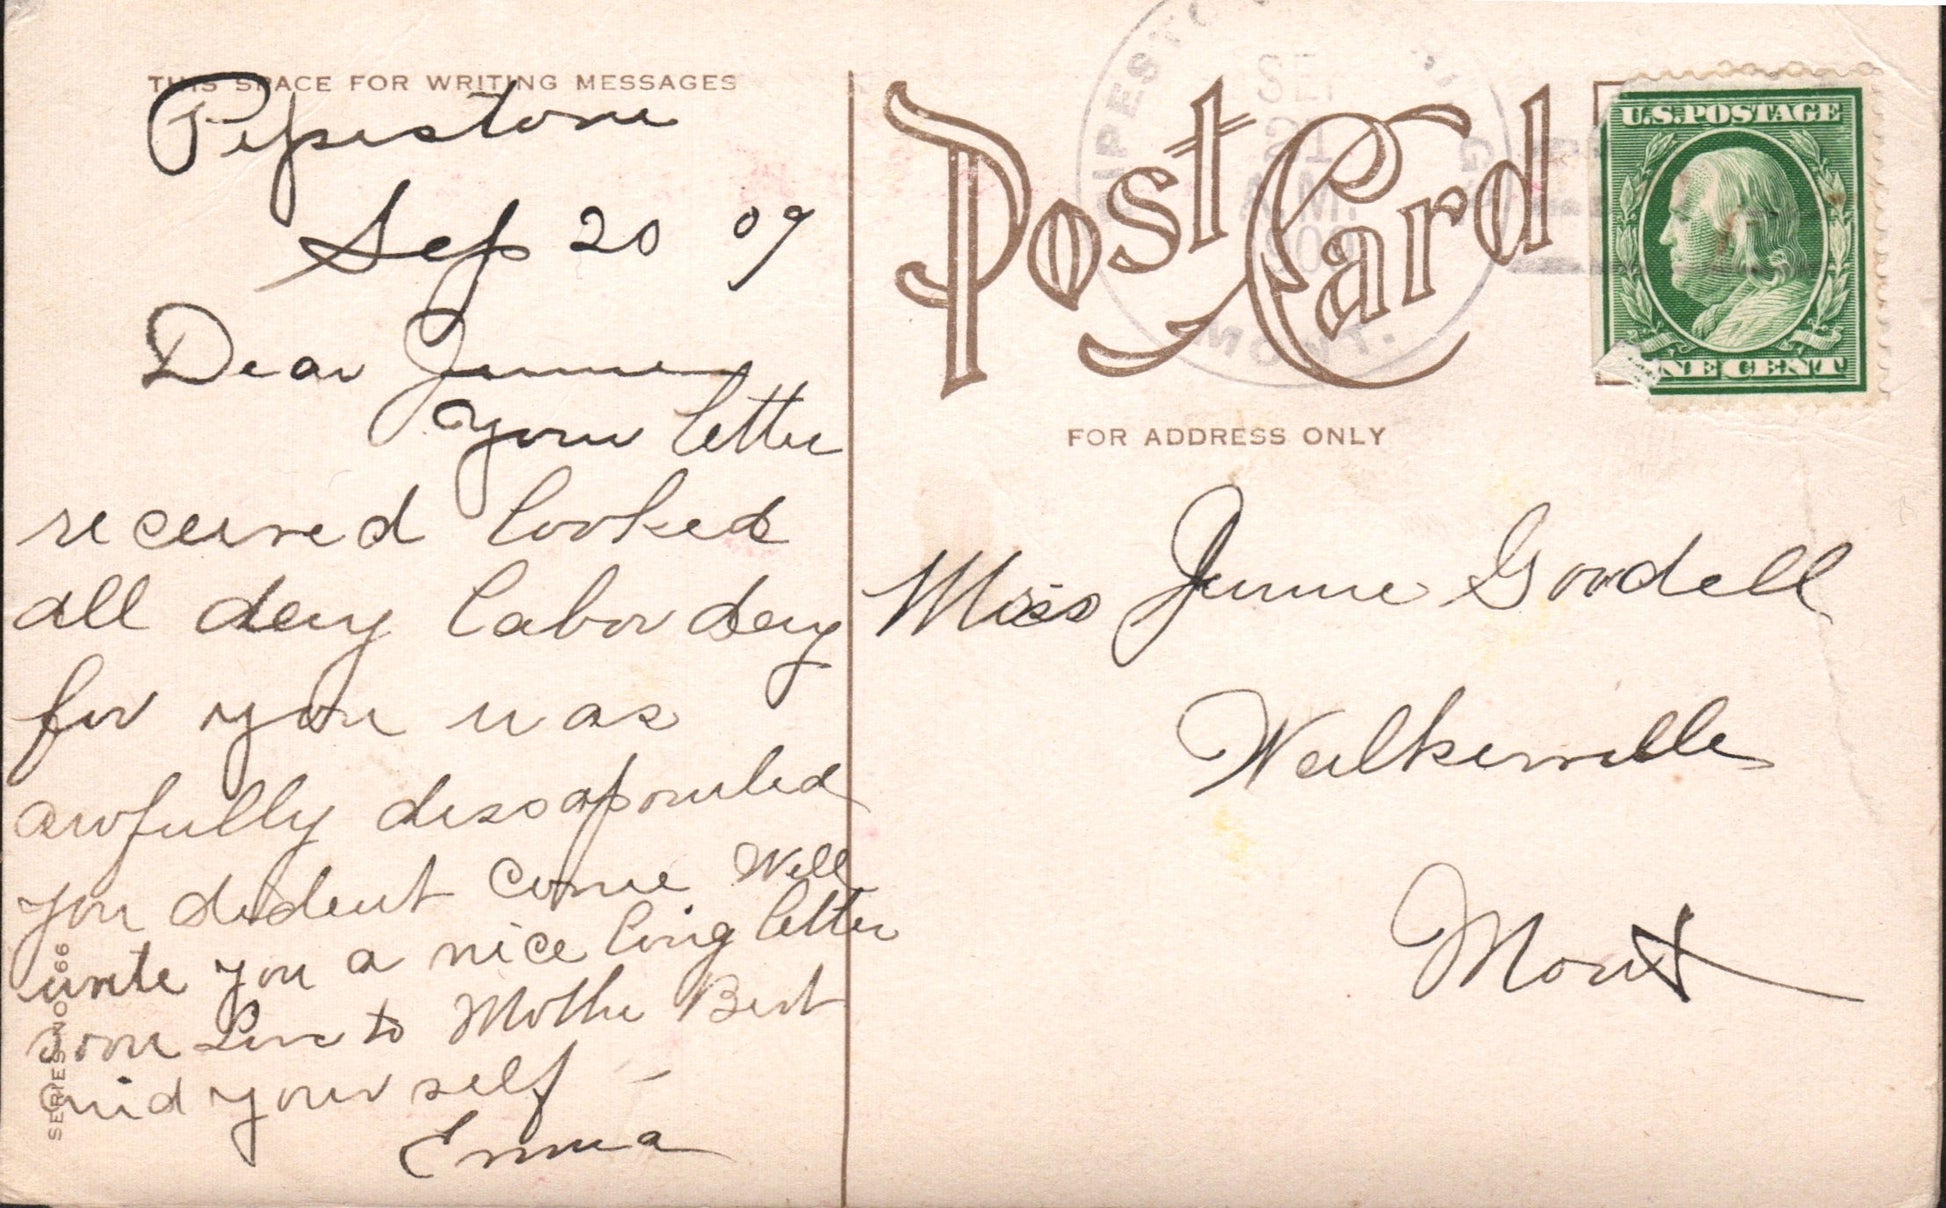 THIS SPACE FOR WRITING MESSAGES
Pipestone
Sep 20 09
Dear Jennie
your letter
received looked
all day labor day
for you was
awfully dissapointed
you dident come Will
write you a nice long letter
soon Love to Mother Bert
and your self –
Emma
SERIES NO 66
PIPESTONE
SEP
21
A.M.
1909
MONT.
Post Card
U.S. POSTAGE
ONE CENT
FOR ADDRESS ONLY
Miss Jennie Goodell
Walkerville
Mont